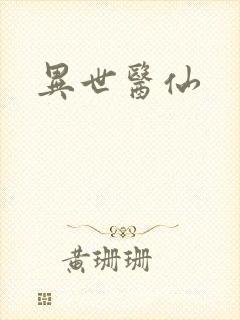 異世醫仙
黃珊珊